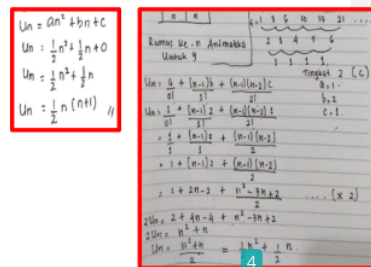 Un = an² + bn + c
Un = 1/2 n² + 1/2 n + 0
Un = 1/2 n² + 1/2 n
Un = 1/2 n (n+1) //
n n
1 3 6 10 15 21 ....
2 3 4 5 6
1 1 1 1
Rumus ke-n Aritmatika
Untuk y
Tingkat 2 (c)
a = 1
b = 2
c = 1
Un = a/0! + (n-1)b/1! + (n-1)(n-2)c/2!
Un = 1/0! + (n-1)2/1! + (n-1)(n-2)1/2!
= 1/1 + (n-1)2/1 + (n-1)(n-2)/2
= 1 + (n-1)2 + (n-1)(n-2)/2
= 1 + 2n-2 + n²-3n+2/2 .... (x 2)
2Un = 2 + 4n - 4 + n² - 3n + 2
2Un = n² + n
Un = n²+n/2 = 1/2 n² + 1/2 n
4